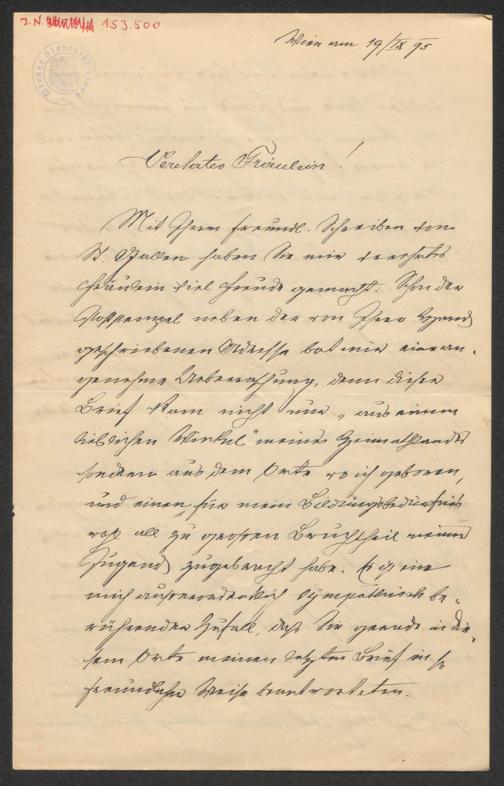 J.N. 153.500
Wiener Stadtbibliothek
Wien am 19/IX 95
Verehrtes Fräulein!
Mit Ihrem freundl. Schreiben von
St. Gallen haben Sie mir verehrtes
Fräulein viel Freude gemacht. Schon der
Poststempel neben der von Ihrer Hand
geschriebenen Adresse bot mir eine an-
genehme Ueberraschung, denn dieser
Brief kam nicht nur „aus einem
lieblichen Winkel" meines Heimathlandes
sondern aus dem Orte wo ich geboren,
und einen für mein Bildungsbedürfnis
all zu grossen Bruchtheil meiner
Jugend zugebracht habe. Es ist ein
mich ausserordentlich sympathisch be-
rührender Zufall, daß Sie gerade in die-
sem Orte meinen letzten Brief in so
freundlicher Weise beantworteten.